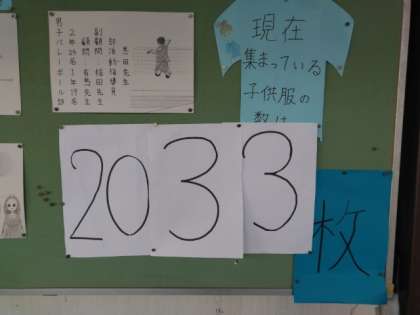 男子バレーボール部
2年29名 1年19名
顧問…有馬先生
副顧問…稲田先生
部活動指導員
恵田先生
現在
集まっている
子供服の
数は
2033
枚